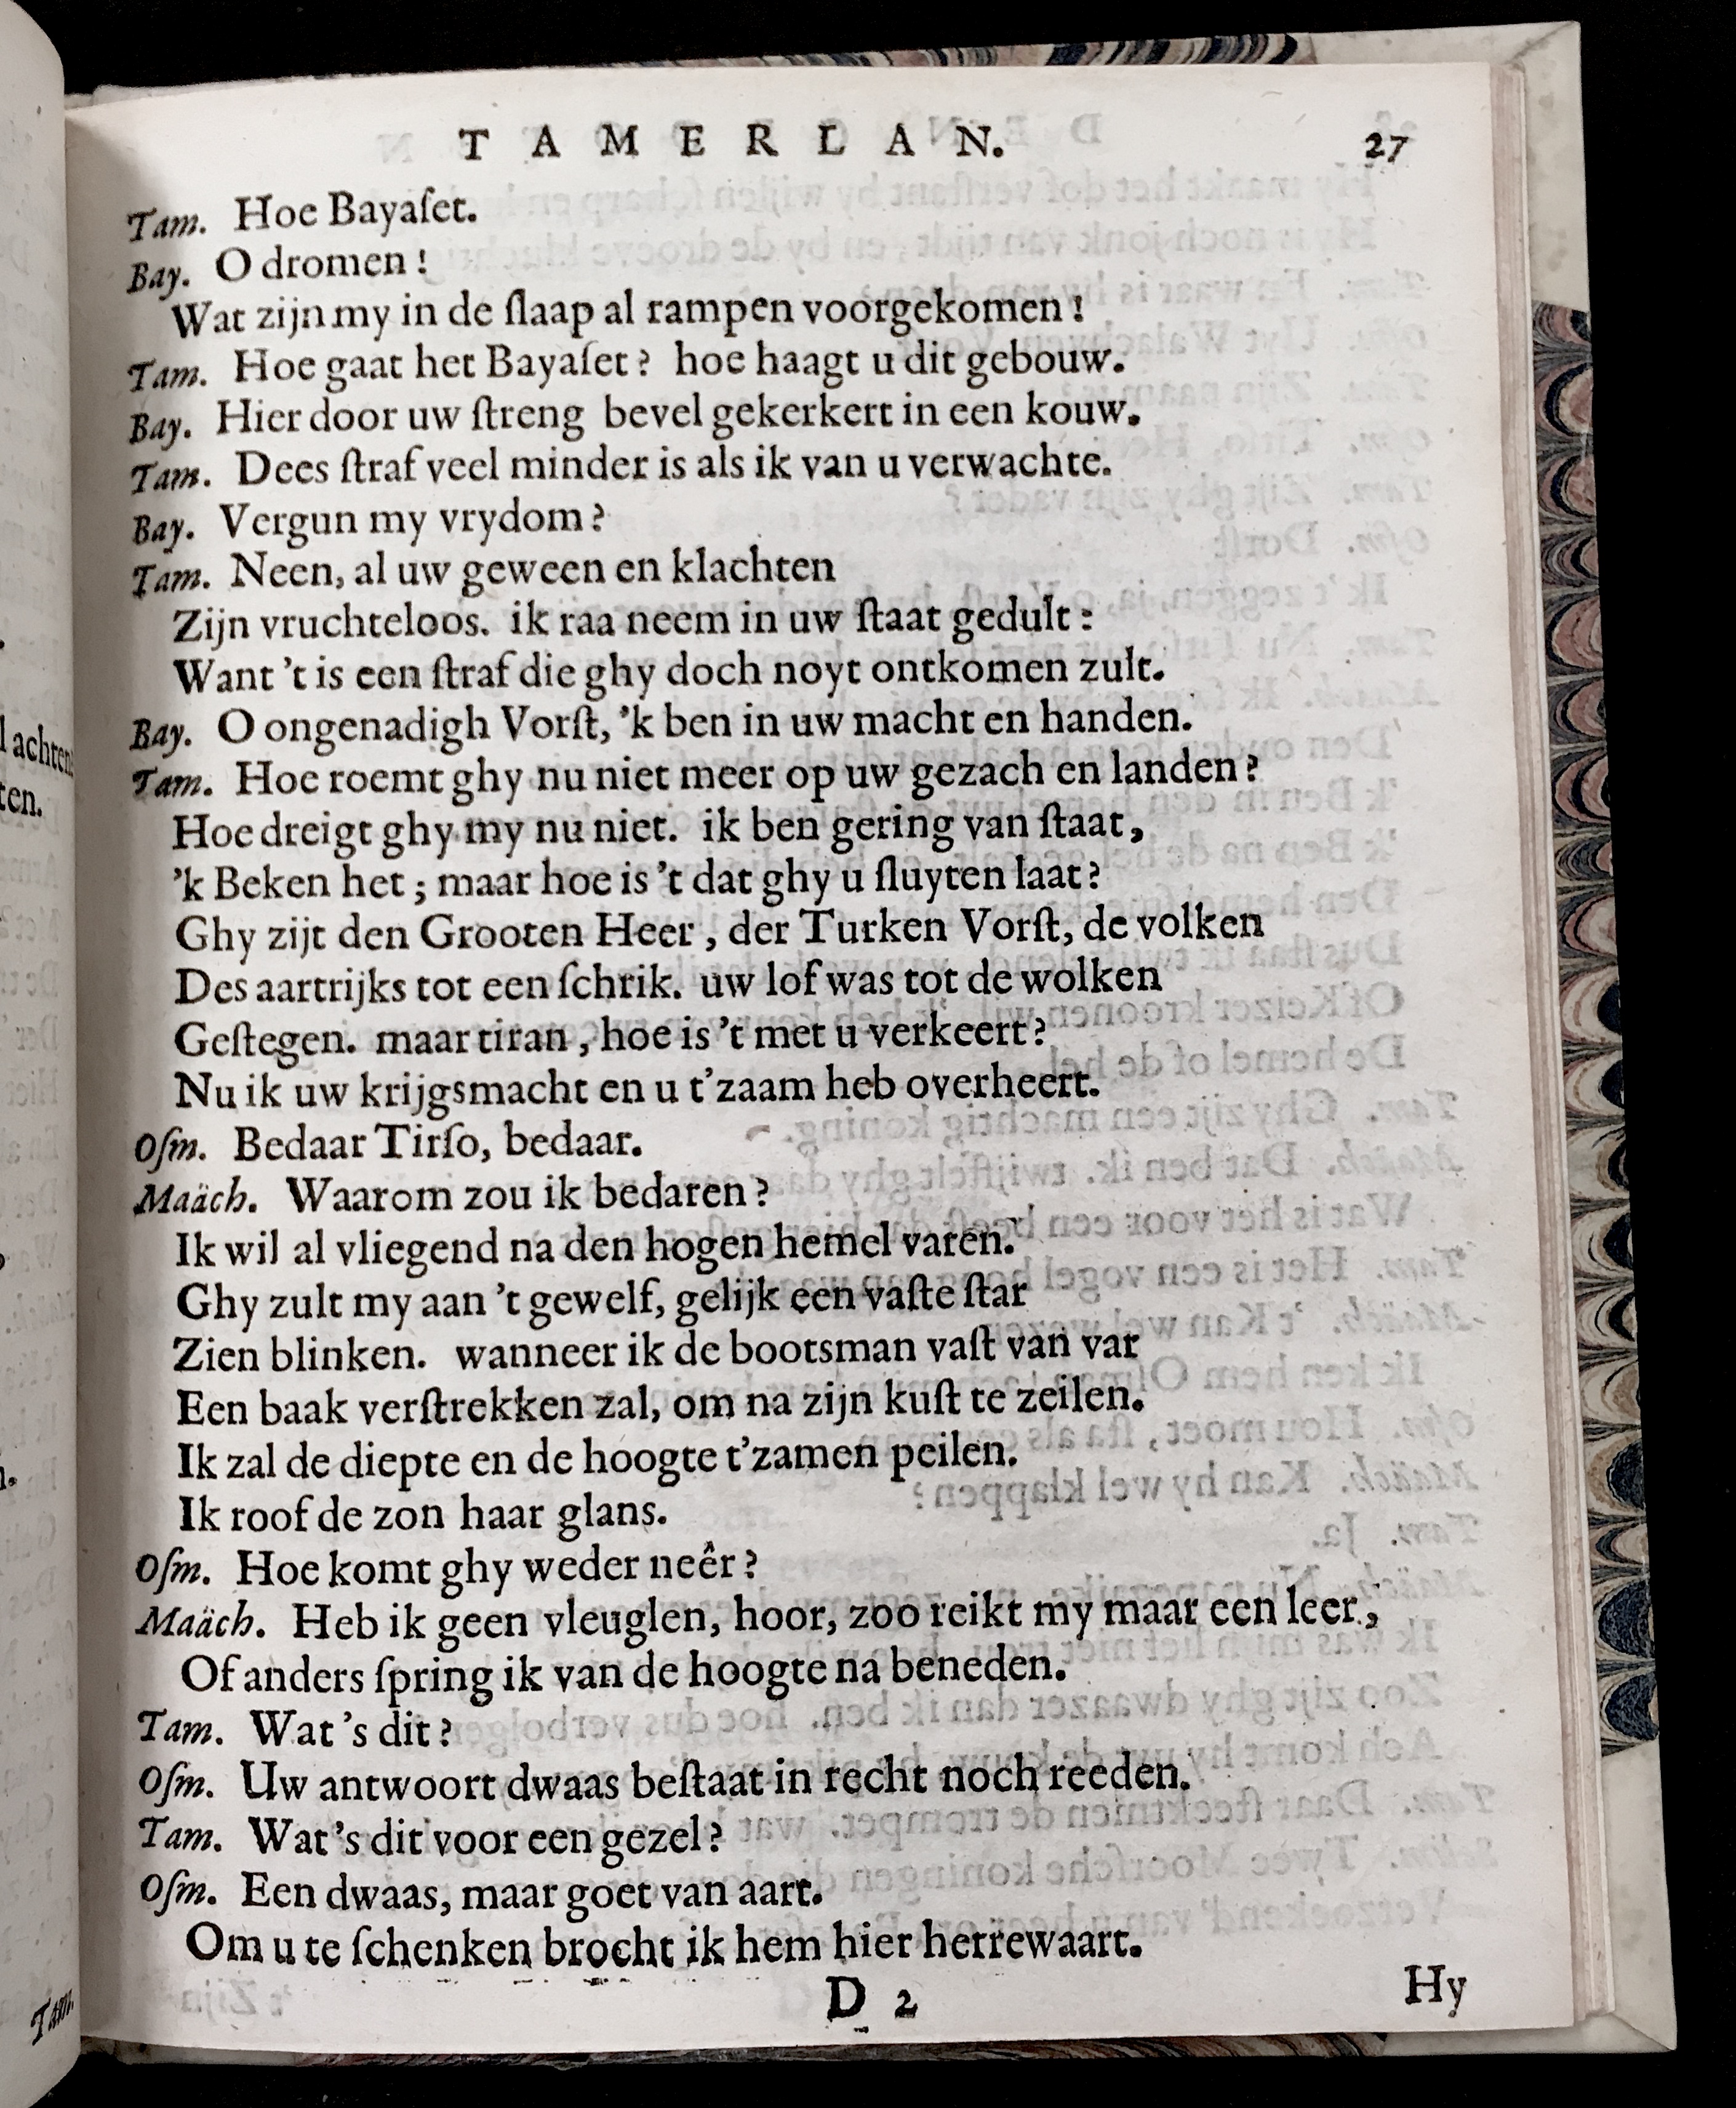 TAMERLAN. 27
Tam. Hoe Bayaſet.
Bay. O dromen!
Wat zijn my in de ſlaap al rampen voorgekomen!
Tam. Hoe gaat het Bayaſet? hoe haagt u dit gebouw.
Bay. Hier door uw ſtreng bevel gekerkert in een kouw.
Tam. Dees ſtraf veel minder is als ik van u verwachte.
Bay. Vergun my vrydom?
Tam. Neen, al uw geween en klachten
Zijn vruchteloos. ik raa neem in uw ſtaat gedult:
Want 't is een ſtraf die ghy doch noyt ontkomen zult.
Bay. O ongenadigh Vorſt, 'k ben in uw macht en handen.
Tam. Hoe roemt ghy nu niet meer op uw gezach en landen?
Hoe dreigt ghy my nu niet. ik ben gering van ſtaat,
'k Beken het; maar hoe is 't dat ghy u ſluyten laat?
Ghy zijt den Grooten Heer, der Turken Vorſt, de volken
Des aartrijks tot een ſchrik. uw lof was tot de wolken
Geſtegen. maar tiran, hoe is 't met u verkeert?
Nu ik uw krijgsmacht en u t'zaam heb overheert.
Oſm. Bedaar Tirſo, bedaar.
Maäch. Waarom zou ik bedaren?
Ik wil al vliegend na den hogen hemel varen.
Ghy zult my aan 't gewelf, gelijk een vaſte ſtar
Zien blinken. wanneer ik de bootsman vaſt van var
Een baak verſtrekken zal, om na zijn kuſt te zeilen.
Ik zal de diepte en de hoogte t'zamen peilen.
Ik roof de zon haar glans.
Oſm. Hoe komt ghy weder neêr?
Maäch. Heb ik geen vleuglen, hoor, zoo reikt my maar een leer,
Of anders ſpring ik van de hoogte na beneden.
Tam. Wat 's dit?
Oſm. Uw antwoort dwaas beſtaat in recht noch reeden.
Tam. Wat 's dit voor een gezel?
Oſm. Een dwaas, maar goet van aart.
Om u te ſchenken brocht ik hem hier herrewaart.
D 2 Hy